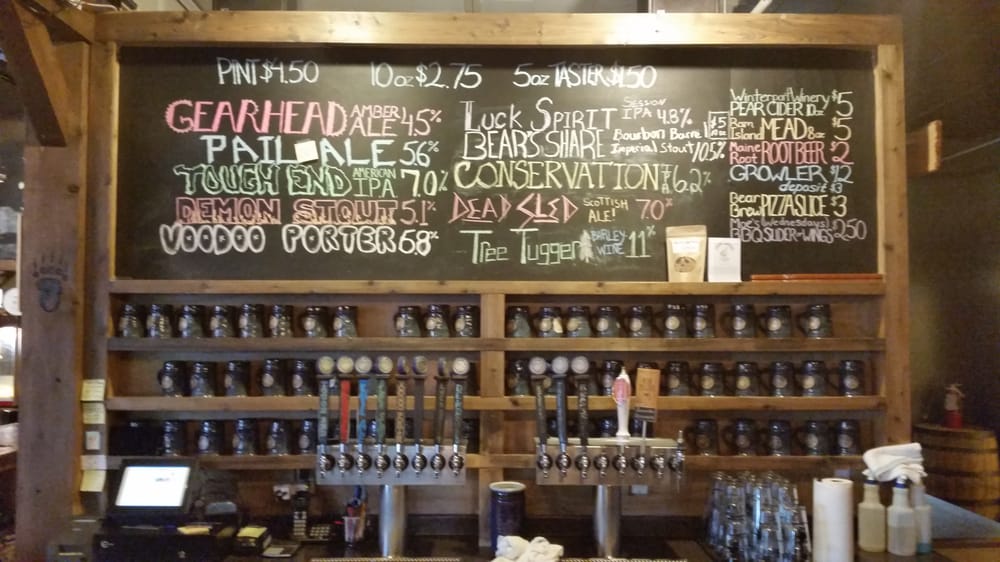 PINT $4.50 10oz $2.75 5oz TASTER $1.50
GEARHEAD AMBER ALE 4.5%
PAIL ALE 5.6%
TOUGH END AMERICAN IPA 7.0%
DEMON STOUT 5.1%
VOODOO PORTER 6.8%
Luck Spirit SESSION IPA 4.8%
BEAR'S SHARE Bourbon Barrel Imperial Stout 10.5% $5 10oz
CONSERVATION IPA 6.2%
DEAD SLED SCOTTISH ALE! 7.0%
Tree Tugger BARLEY-WINE 11%
Winterport Winery
PEAR CIDER 10oz $5
Ram Island MEAD 8oz $5
Maine Root ROOT BEER $2
GROWLER $12
deposit $3
Bear Brew PIZZA SLICE $3
Moe's (Wednesdays)
BBQ SLIDER or WINGS $2.50